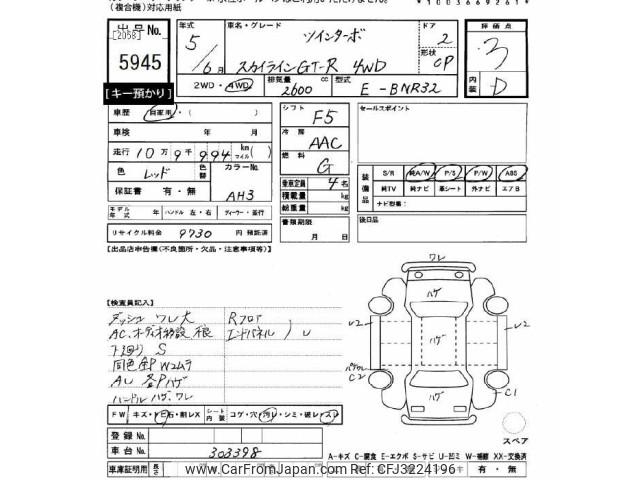 (複合機)対応用紙
*1003669261*
出品No.
[2058]
5945
【キー預かり】
年式
5/6月
車名・グレード
ツインターボ
スカイラインGT-R 4WD
ドア
2
形状
CP
評価点
3
内装
D
2WD・4WD
排気量
2600 cc
型式
E-BNR32
車歴 自家車・( )
車検 年 月
走行 10万9千994 km マイル( )
色 レッド
色替
カラーNo.
AH3
保証書 有・無
モデル年式 年 ハンドル 左・右 ディーラー・並行
リサイクル料金 9730 円 預託済
シフト F5
冷房 AAC
燃料 G
乗車定員 4名
積載量 kg
総重量 kg
書類期限
月 日
セールスポイント
装備品
S/R 純A/W P/S P/W ABS
純TV 純ナビ 革シート 外ナビ エアB
ナビ型番:
後日品
【出品店申告欄(不良箇所・欠品・注意事項等)】
【検査員記入】
ダッシュ ワレ大
Rフロア
エンドパネル
下廻り S
同色全P Wムラ
各Pハゲ
ハンドル ハゲ、ワレ
ワレ
ハゲ
ハゲ
ハゲ
C2
C1
スペア
FW キズ・ヒビ・石・刷レX
シート内張 コゲ・穴・汚レ・シミ・破レ・スレ
登録No.
車台No. 303398
A-キズ C-腐食 E-エクボ S-サビ U-凹ミ W-補修 XX-交換済
車庫証明用
長さ
有・無
www.CarFromJapan.com Ref:CFJ3224196